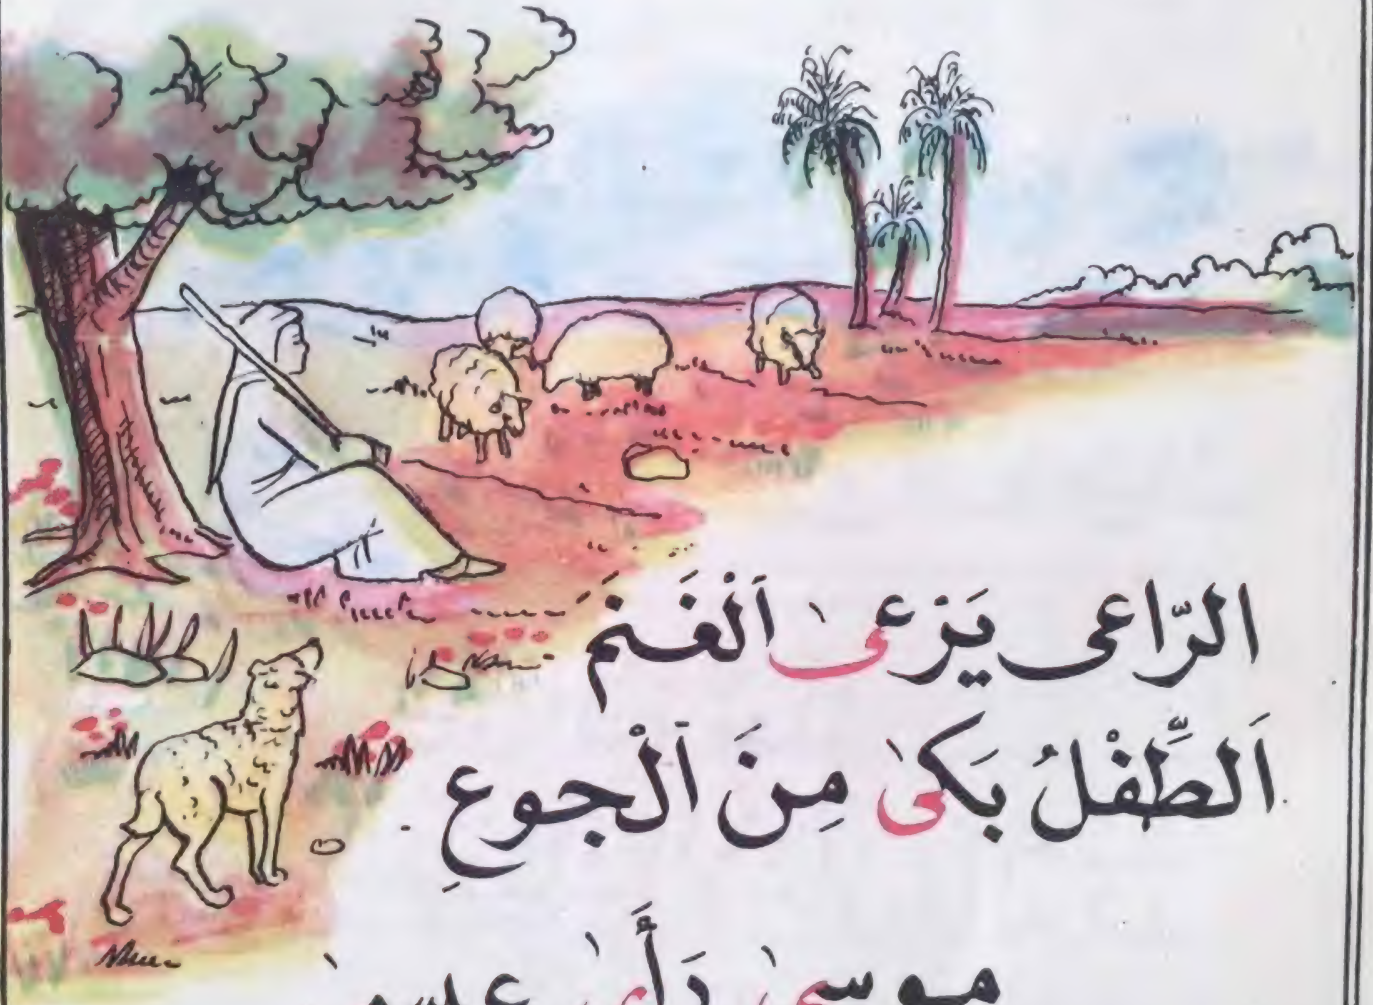 الرّاعى يَرْعىٰ اَلْغَنَمَ
اَلطِّفْلُ بَكىٰ مِنَ اَلْجوعِ
موسىٰ رَأَىٰ